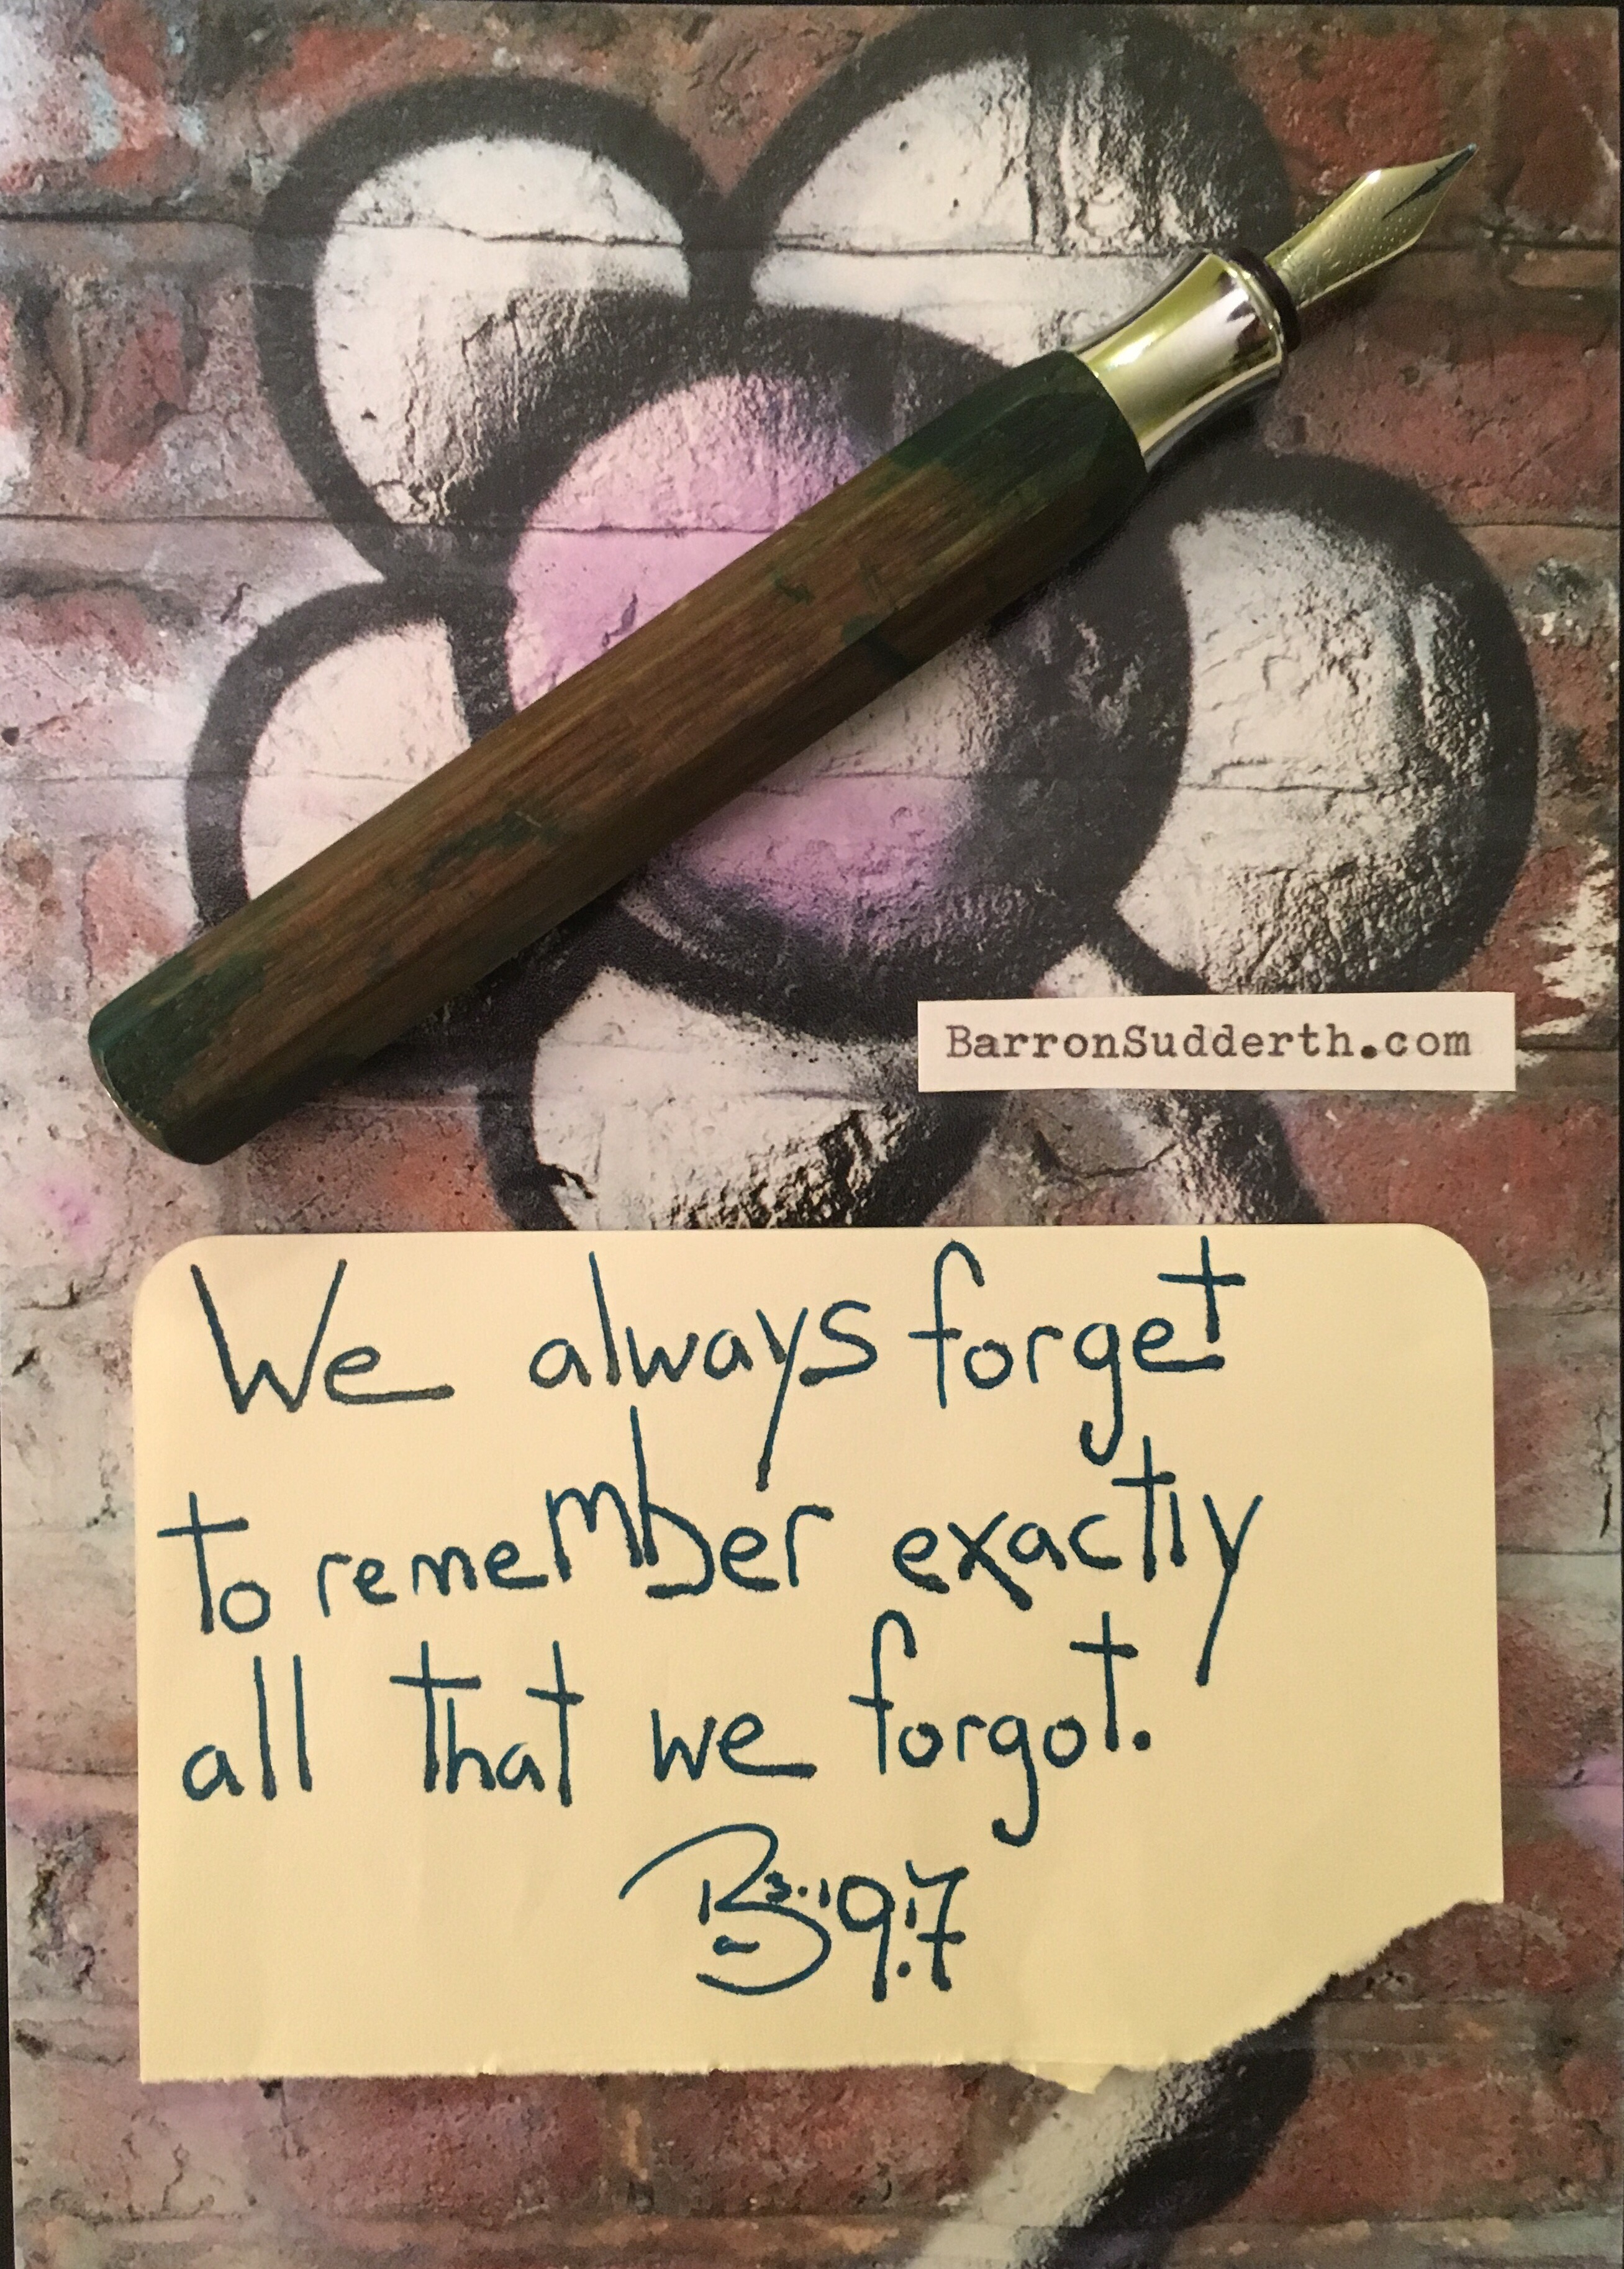 BarronSudderth.com
We always forget
to remember exactly
all that we forgot.